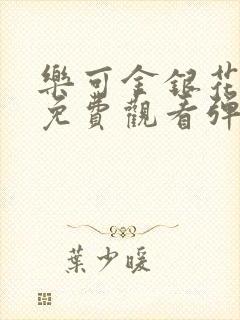 樂可金銀花
免費觀看彈
葉少暖